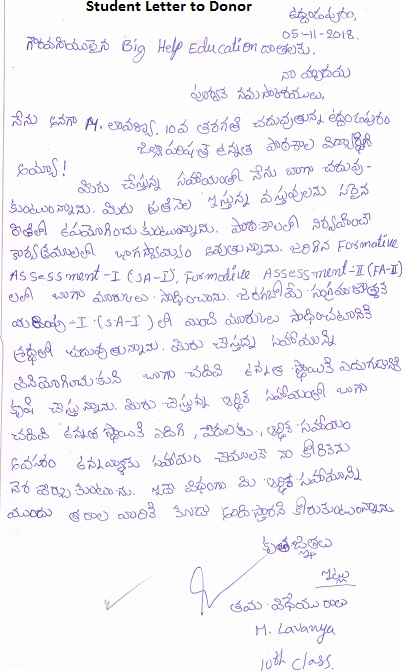 Student Letter to Donor
ఉద్దండపురం,
05-11-2018.
గౌరవనీయులైన Big Help Education దాతలకు,
నా హృదయ
పూర్వక నమస్కారములు.
నేను అనగా M. లావణ్య. 10వ తరగతి చదువుతున్న ఉద్దండపురం
జిల్లా పరిషత్ ఉన్నత పాఠశాల విద్యార్థిని
అయ్యా!
మీరు చేస్తున్న సహాయంతో నేను బాగా చదువు-
కుంటున్నాను. మీరు ప్రతినెల ఇస్తున్న వస్తువులను సరైన
రీతిలో ఉపయోగించుకుంటున్నాను. పాఠశాలలో నిర్వహించే
కార్యక్రమాలలో భాగస్వామ్యం అవుతున్నాను. జరిగిన Formative
Assessment-I (SA-I), Formative Assessment-II (FA-II)
లలో బాగా మార్కులు సాధించాను. జరగబోయే సంగ్రహణాత్మక
-I (SA-I) లో మంచి మార్కులు సాధించటానికి
శ్రద్ధతో చదువుతున్నాను. మీరు చేస్తున్న సహాయాన్ని
వినియోగించుకుని బాగా చదివి ఉన్నత స్థాయికి ఎదుగుటకు
కృషి చేస్తున్నాను. మీరు చేస్తున్న ఆర్థిక సహాయంతో బాగా
చదివి ఉన్నత స్థాయికి ఎదిగి, పేదలకు, ఆర్థిక సహాయం
అవసరం ఉన్నవాళ్లకు సహాయం చేయాలనే నా కోరికను
నెరవేర్చుకుంటాను. ఇదే విధంగా మీ ఆర్థిక సహాయాన్ని
ముందు తరాల వారికి కూడా అందిస్తారని కోరుకుంటున్నాను
కృతజ్ఞతలు
ఇట్లు
తమ విధేయురాలు
M. Lavanya
10th class.